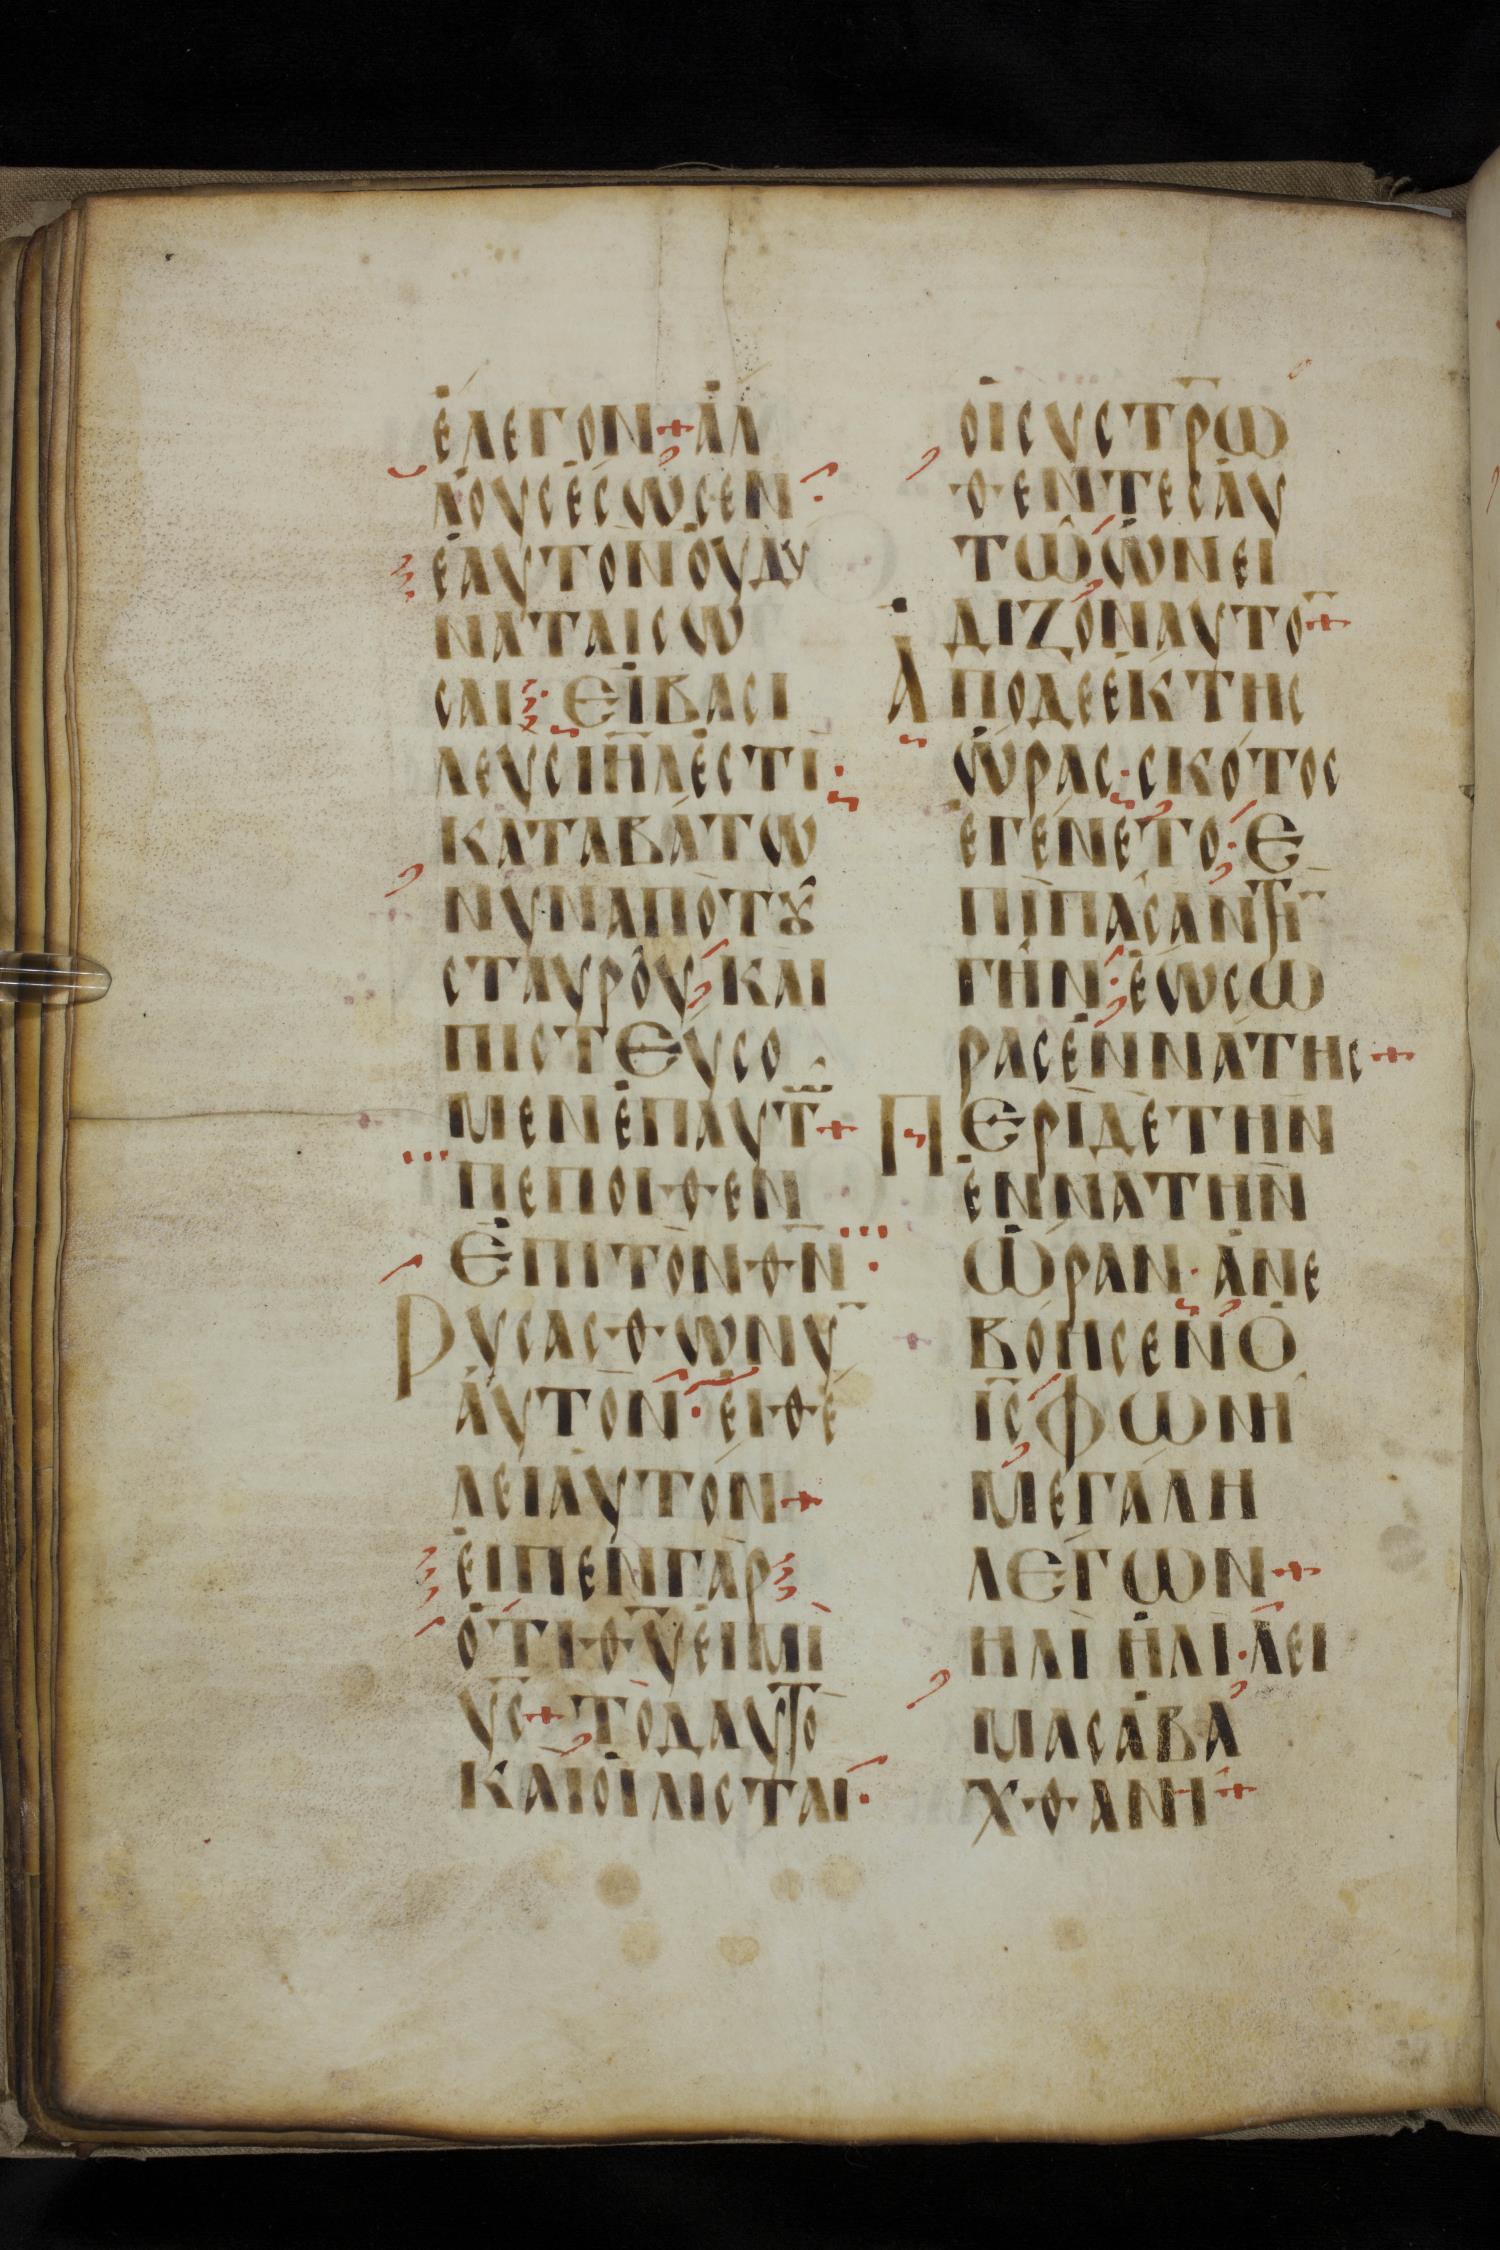 ἐλεγον+ἀλ
λους ἐσωσεν
ἑαυτὸν οὐ δυ
ναται σω
σαι· Εἰ βασι
λευς ιη̅λ ἐστὶ·
καταβάτω
νυν ἀπὸ τȣ
σταυρου· και
πιστευσο
μεν ἐπ αυτω+
πεποιθεν
ἐπι τὸν θν̅·
Ρυσασθω νυ̅
αὐτον· εἰ θέ
λει αὐτόν+
εἰπεν γὰρ
ὁτι θυ̅ εἰμὶ
υς̅+ τὸ δ αυτὸ
και οἱ λισται·
οἱ συστρ̅ω
θεντες αὐ
τῶ ὠνει
διζον αυτο̅+
Ἀπο δε ἑκτης
ὡρας· σκότος
ἐγένετο· ἐ
πὶ πᾶσαν τη̅
γῆν· ἑως ω
ρας ἐννάτης+
Περὶ δὲ τὴν
ἐννατην
ὡραν· ἀνε
βόησεν ὁ
ις̅ φωνη
μεγάλη
λέγων+
ηλὶ ἠλι· λει
μα σαβα
χθανη+